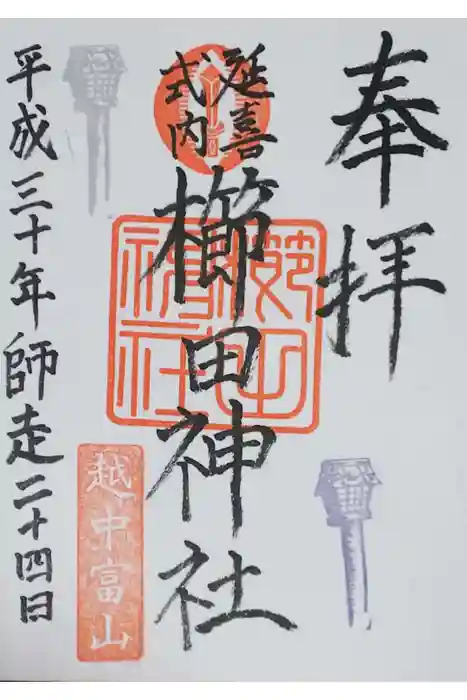 奉拝
延喜
式内
櫛田神社
越中富山
平成三十年師走二十四日